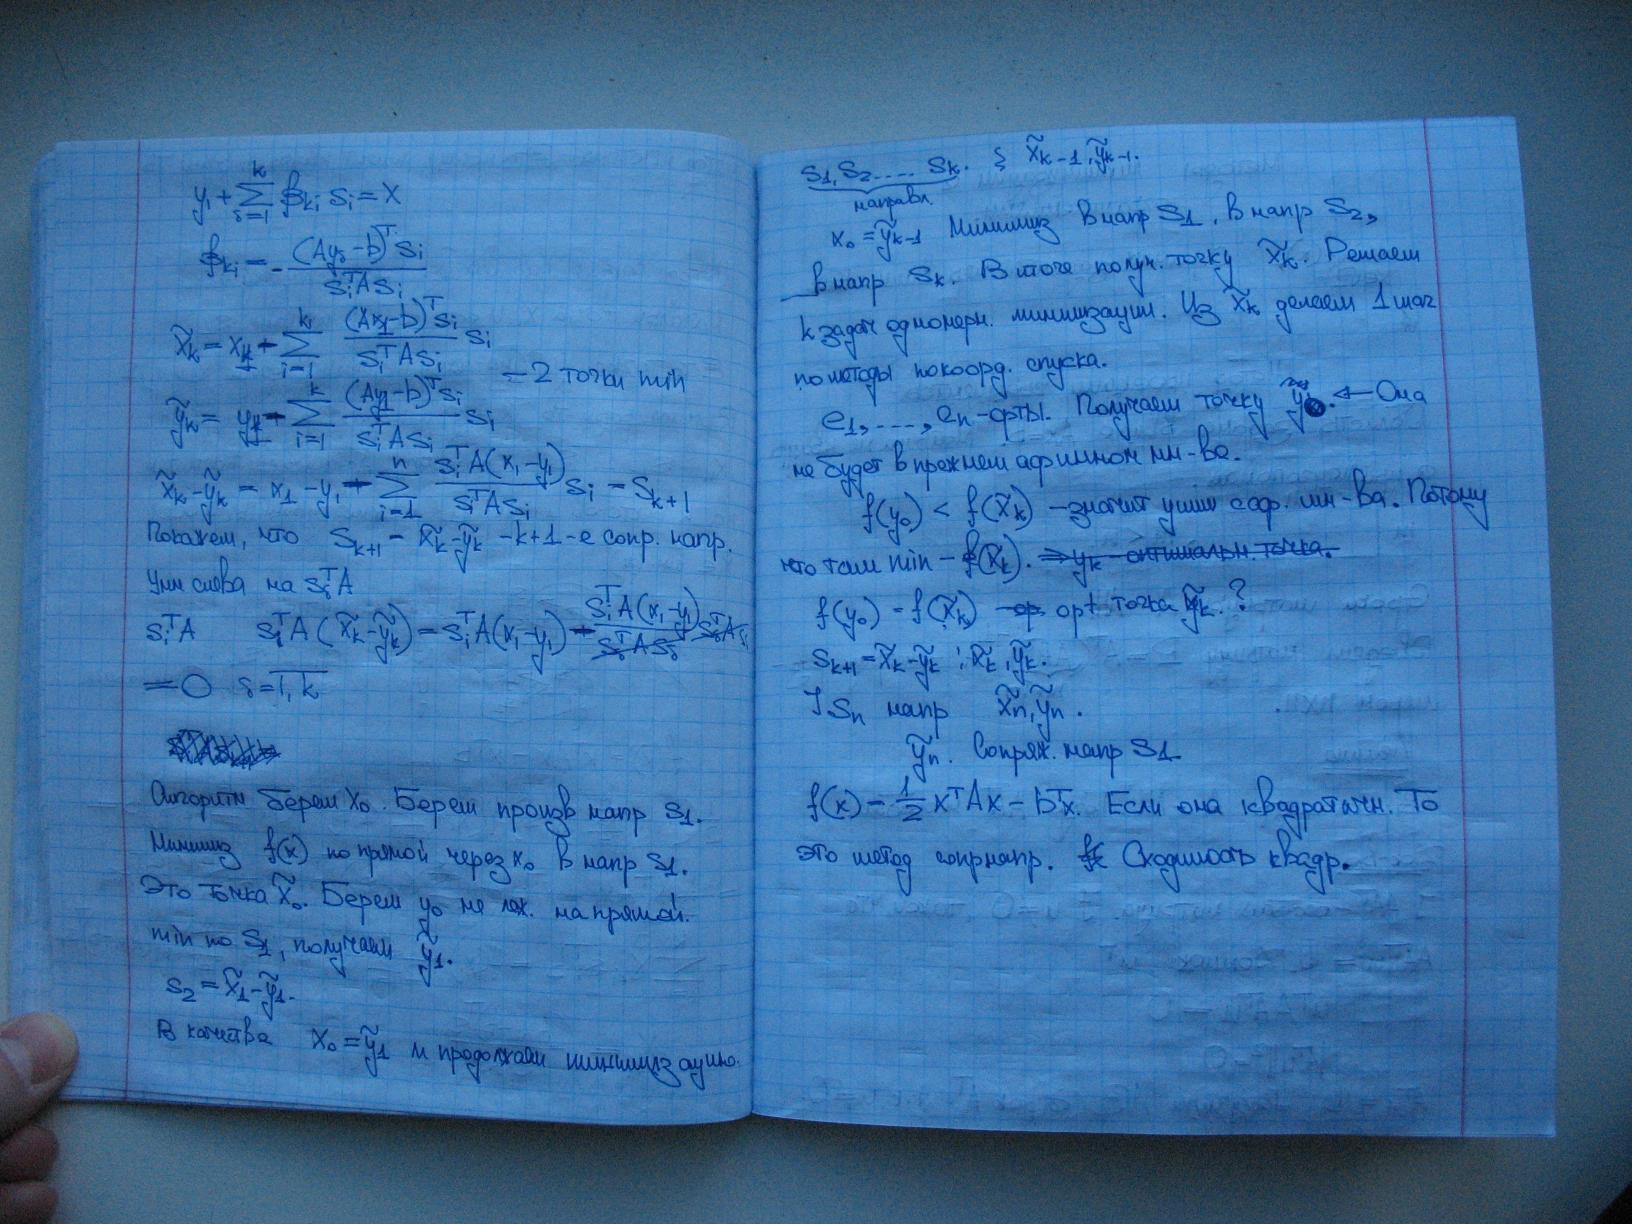 y₁ + Σ_{i=1}^{k} β_{ki} s_i = x
β_{ki} = - (Ay₀ - b)ᵀ s_i / s_iᵀ A s_i
x̃_k = x_1 - Σ_{i=1}^{k} (Ax_1 - b)ᵀ s_i / s_iᵀ A s_i s_i
ỹ_k = y_1 - Σ_{i=1}^{k} (Ay_1 - b)ᵀ s_i / s_iᵀ A s_i s_i - 2 точки min
x̃_k - ỹ_k = x_1 - y_1 - Σ_{i=1}^{n} s_iᵀ A (x_1 - y_1) / s_iᵀ A s_i s_i = s_{k+1}
Покажем, что s_{k+1} = x̃_k - ỹ_k - k+1-е сопр. напр.
Умн слева на s_iᵀ A
s_iᵀ A s_iᵀ A (x̃_k - ỹ_k) = s_iᵀ A (x_1 - y_1) - s_iᵀ A (x_1 - y_1) / s_iᵀ A s_i s_iᵀ A s_i
= 0 i = 1, k
Алгоритм берем x₀. Берем произв напр s_1.
Минимиз f(x) по прямой через x₀ в напр s_1.
Это точка x̃₀. Берем y₀ не леж. на прямой.
min по s_1, получаем ỹ_1.
s_2 = x̃_1 - ỹ_1.
В качества x₀ = ỹ_1 и продолжаем
s_1, s_2 .... s_k. x̃_{k-1}, ỹ_{k-1}.
направл.
x₀ = ỹ_{k-1} Минимиз в напр s_1, в напр s_2,
в напр s_k. В итоге получ. точку x̃_k. Решаем
k задач одномерн. минимизации. Из x̃_k делаем 1 шаг
по методы покоорд. спуска.
e_1, ...., e_n - орты. Получаем точку ← Она
не будет в прежнем афинном мн-ве.
f(y₀) < f(x̃_k) - значит ушли с аф. мн-ва. Потому
что там min - f(x̃_k). ⇒ y_k - оптимальн. точка.
f(y₀) = f(x̃_k) opt точка x̃_k. ?
s_{k+1} = x̃_k - ỹ_k ; x̃_k, ỹ_k.
s_n напр x̃_n, ỹ_n.
ỹ_n. Сопряж. напр s_1
f(x) = 1/2 xᵀAx - bᵀx. Если она квадратичн. То
это метод сопр напр. Сходимость квадр.